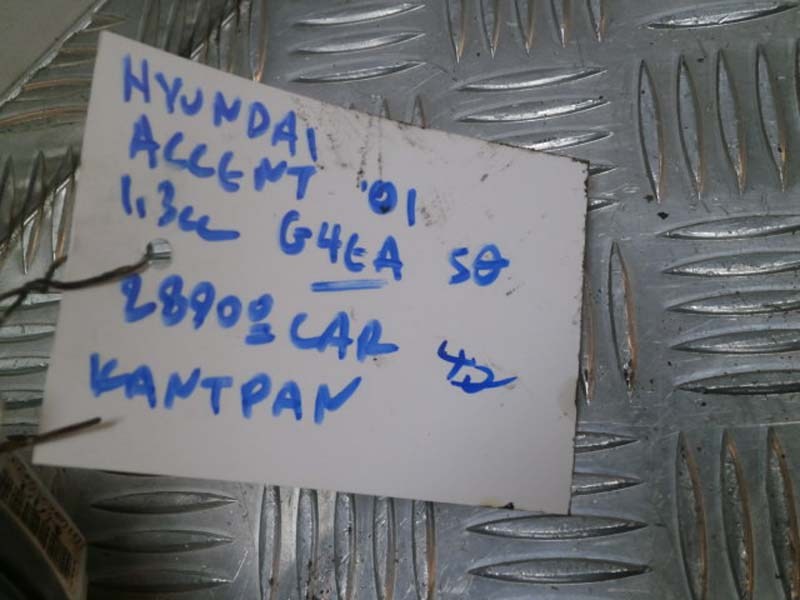 HYUNDAI
ACCENT '01
1,3cc G4EA 5θ
28900 CAR 42
KANTPAN